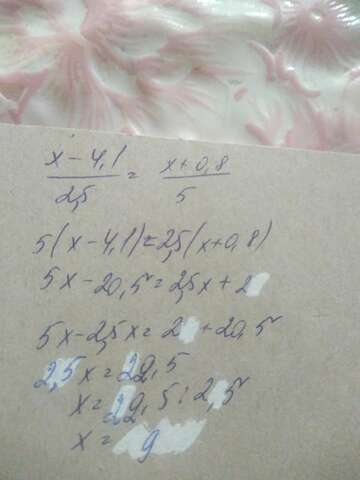 x - 4,1 / 2,5 = x + 0,8 / 5
5(x - 4,1) = 2,5(x + 0,8)
5x - 20,5 = 2,5x + 2
5x - 2,5x = 2 + 20,5
2,5x = 22,5
x = 22,5 : 2,5
x = 9